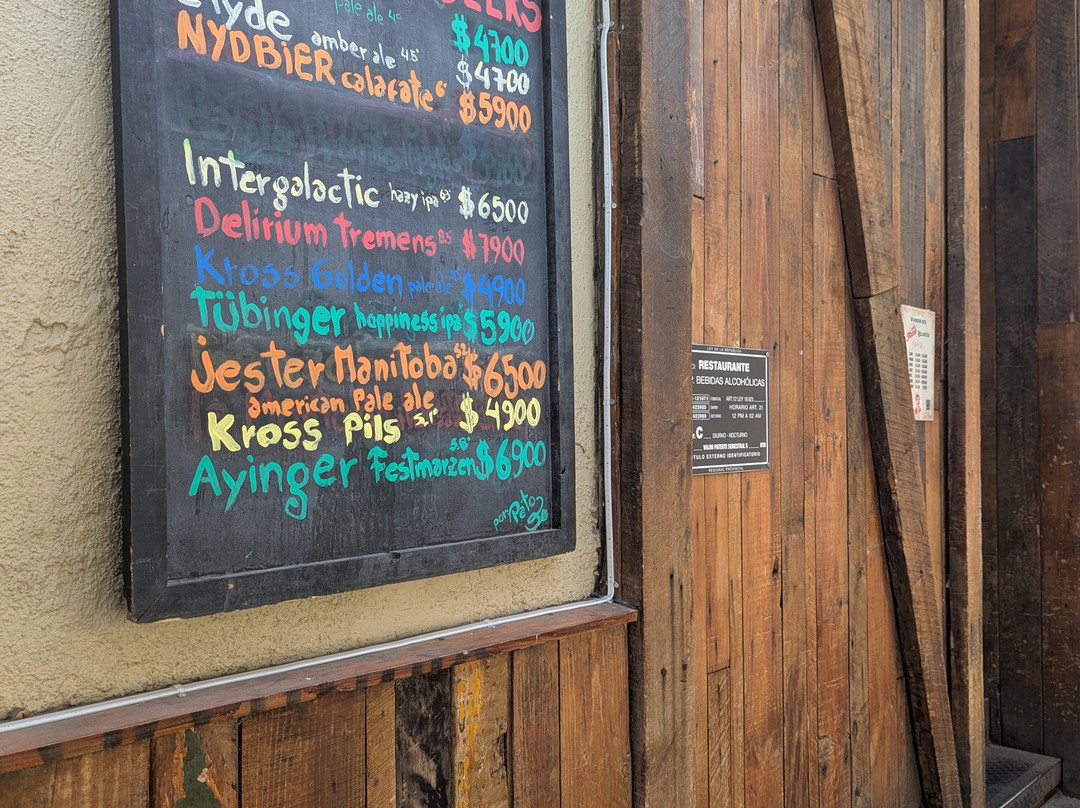 BEERS
pale ale 4° $4700
Clyde amber ale 4.5° $4700
NYDBIER calafate 6° $5900
Intergalactic hazy ipa 6.5° $6500
Delirium Tremens 8.5 $7900
Kross Golden pale ale $4900
Tübinger happiness ipa $5900
jester Manitoba $6500
american Pale ale
Kross Pils $4900
Ayinger Festmarzen 5.8° $6900
por: Pato
LEY DE LA REPUBLICA
RESTAURANTE
BEBIDAS ALCOHÓLICAS
HORARIO ART. 21
12 PM A 02 AM
C DIURNO - NOCTURNO
VALOR PATENTE SEMESTRAL UTM
ROTULO EXTERNO IDENTIFICATORIO
REGIONAL PROVINCIAL